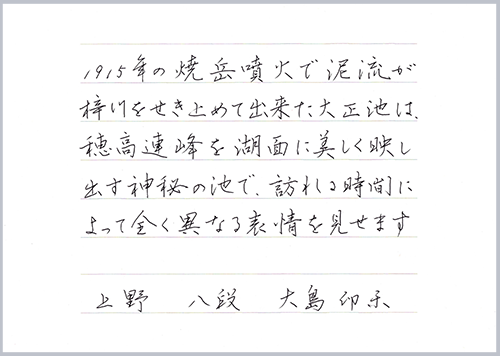 1915年の焼岳噴火で泥流が
梓川をせき止めて出来た大正池は、
穂高連峰を湖面に美しく映し
出す神秘の池で、訪れる時間に
よって全く異なる表情を見せます
上野 八段 大島 印禾